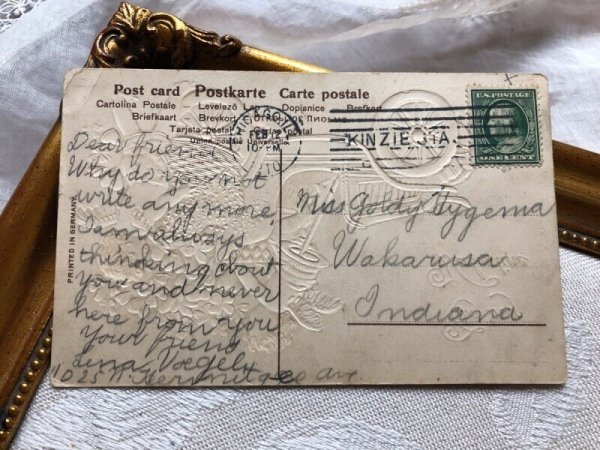 Post card Postkarte Carte postale
Cartolina Postale Levelező Lap Dopisnice Brefkort
Briefkaart Brevkort
Tarjeta postal
Union postale Universelle
CHICAGO, ILL.
FEB
10 PM
KINZIE STA.
U.S. POSTAGE
ONE CENT
PRINTED IN GERMANY.
Dear friend
Why do you not
write any more
I am always
thinking about
you and never
here from you
your friend
Lena
1025 N. ave
Miss Goldy Hygema
Wakarusa
Indiana